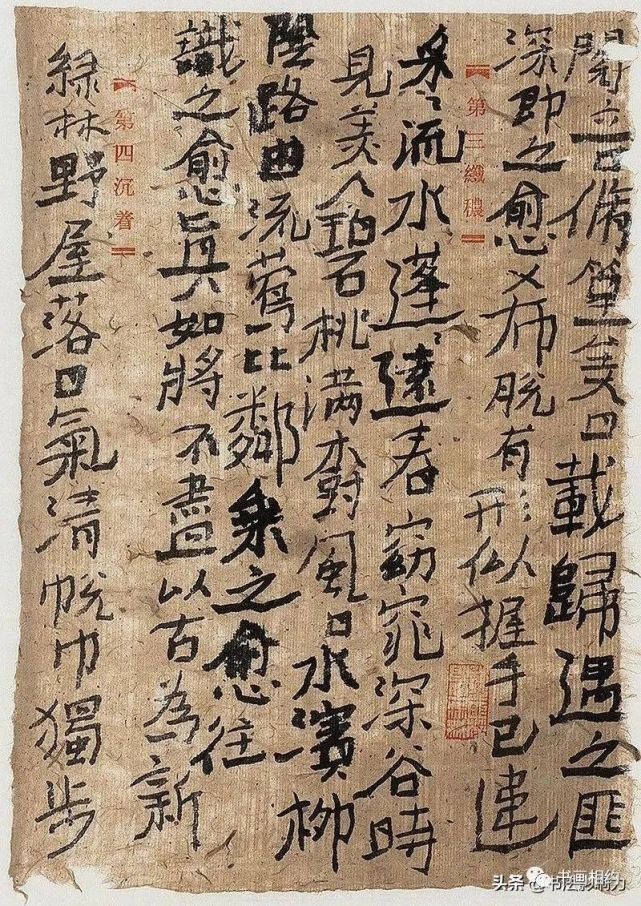 閱音脩篁美曰載歸遇之匪
深即之愈希脫有形似握手已違
第三纖穠
采〻流水蓬〻遠春窈窕深谷時
見美人碧桃滿樹風日水濱柳
陰路曲流鶯比鄰乘之愈往
識之愈真如將不盡以古為新
第四沉着
綠林野屋落日氣清帨巾獨步
书画相约
头条